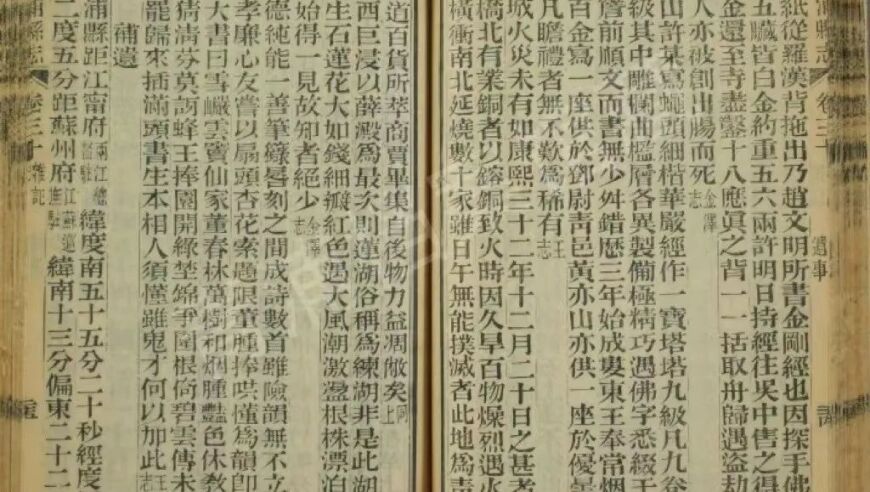 浦縣志 卷三十 遺事
紙從羅漢背拖出乃趙文明所書金剛經也因探手佛
五臟皆白金約重五六兩許明日持經往吳中售之得
金還至寺盡鑿十八應眞之背一一括取舟歸遇盜劫
人亦被創出腸而死金澤志
山許某寫蠅頭細楷華嚴經作一寶塔塔九級凡九卷
級其中雕闌曲檻層各異製備極精巧遇佛字悉綴于
簷前順文而書無少舛錯歷三年始成婁東王奉常烟
百金寫一座供於鄧尉靑邑黃亦山亦供一座於優曇
凡瞻禮者無不歎爲稀有王志
城火災未有如康熙三十二年十二月二十日之甚者
橋北有業銅者以鎔銅致火時因久旱百物燥烈遇火
橫衝南北延燒數十家雖日午無能撲滅者此地爲靑
道百貨所萃商賈畢集自後物力益凋敝矣同上
西巨浸以薛澱爲最次則蓮湖俗稱爲練湖非是此湖
生石蓮花大如錢細瓣紅色遇大風潮激盈根株漂泊
始得一見故知者絕少金澤志
德純能一善筆籙脣刻之間成詩數首雖險韻無不立
孝廉心友嘗以扇頭杏花索題限董腫捧哄懂爲韻卽
大書曰雪巘雲寶仙家董春林萬樹和烟腫艷色休教
猜清芬莫訝蜂王捧園開綠埜綿爭圍根倚碧雲傳未
罷歸來插滿頭書生本相人須懂雖鬼才何以加此王志
補遺
浦縣距江甯府兩江總督駐緯度南五十五分二十秒經度
二度五分距蘇州府江蘇巡撫駐緯南十三分偏東二十二
浦縣志 卷三十 雜記